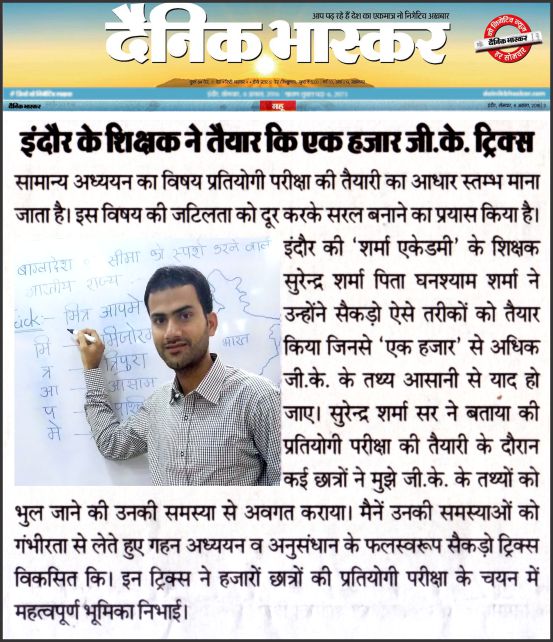 आप पढ़ रहे हैं देश का एकमात्र नो निगेटिव अखबार
दैनिक भास्कर
नो निगेटिव न्यूज
दैनिक भास्कर
हर सोमवार
दैनिक भास्कर
महू
इंदौर के शिक्षक ने तैयार कि एक हजार जी.के. ट्रिक्स
सामान्य अध्ययन का विषय प्रतियोगी परीक्षा की तैयारी का आधार स्तम्भ माना
जाता है। इस विषय की जटिलता को दूर करके सरल बनाने का प्रयास किया है।
इंदौर की ‘शर्मा एकेडमी’ के शिक्षक
सुरेन्द्र शर्मा पिता घनश्याम शर्मा ने
उन्होंने सैकड़ो ऐसे तरीकों को तैयार
किया जिनसे ‘एक हजार’ से अधिक
जी.के. के तथ्य आसानी से याद हो
जाए। सुरेन्द्र शर्मा सर ने बताया की
प्रतियोगी परीक्षा की तैयारी के दौरान
कई छात्रों ने मुझे जी.के. के तथ्यों को
भुल जाने की उनकी समस्या से अवगत कराया। मैनें उनकी समस्याओं को
गंभीरता से लेते हुए गहन अध्ययन व अनुसंधान के फलस्वरूप सैकड़ो ट्रिक्स
विकसित कि। इन ट्रिक्स ने हजारों छात्रों की प्रतियोगी परीक्षा के चयन में
महत्वपूर्ण भूमिका निभाई।
बांग्लादेश : सीमा को स्पर्श करने वाले
भारतीय राज्य
ick:- मित्र आपमे
मि मिजोरम
त्र त्रिपुरा
आ आसाम
प
मे
भारत